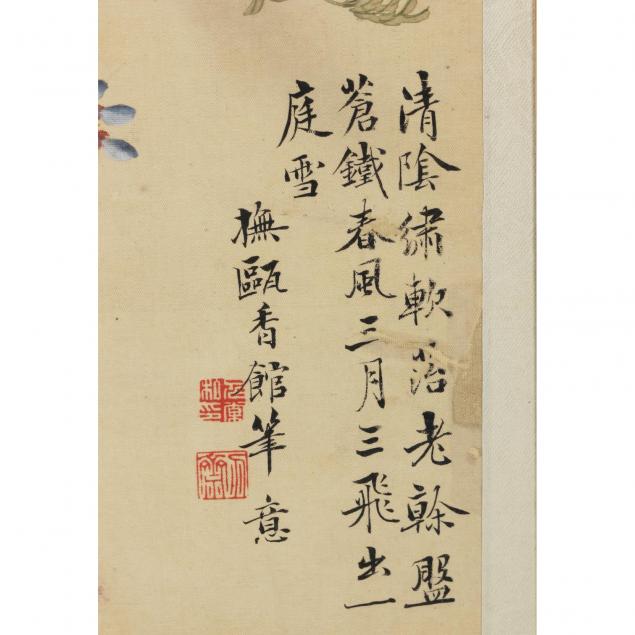 清陰繡軟落老榦盤
蒼鐵春風三月三飛出一
庭雪
撫甌香館筆意